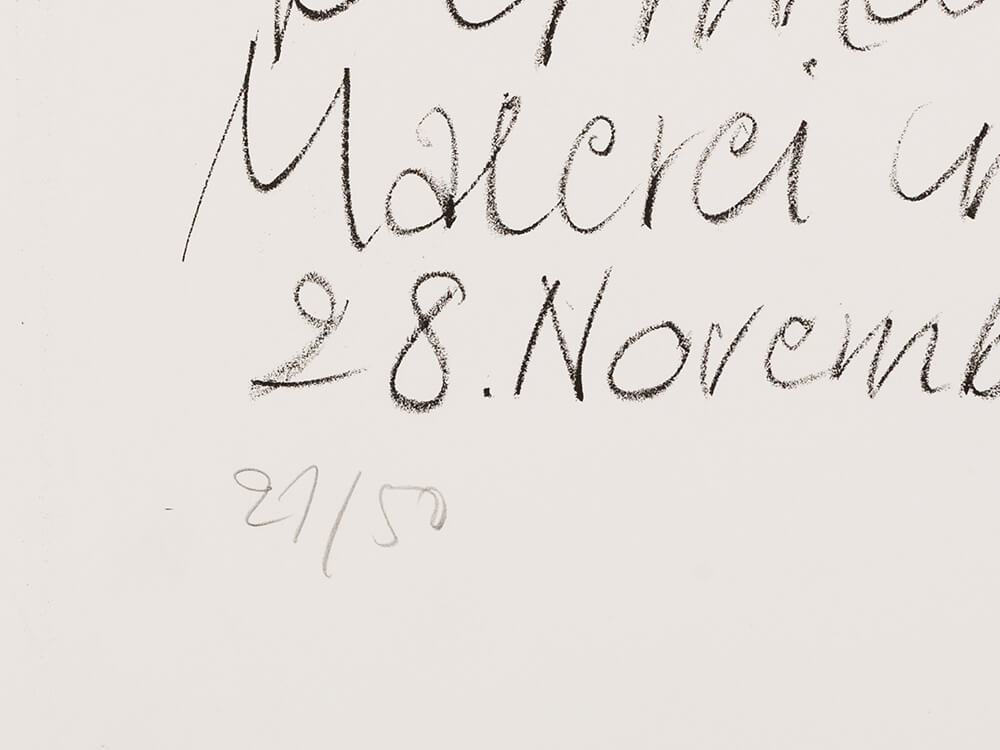 Malerei
28. Novemb
21/50